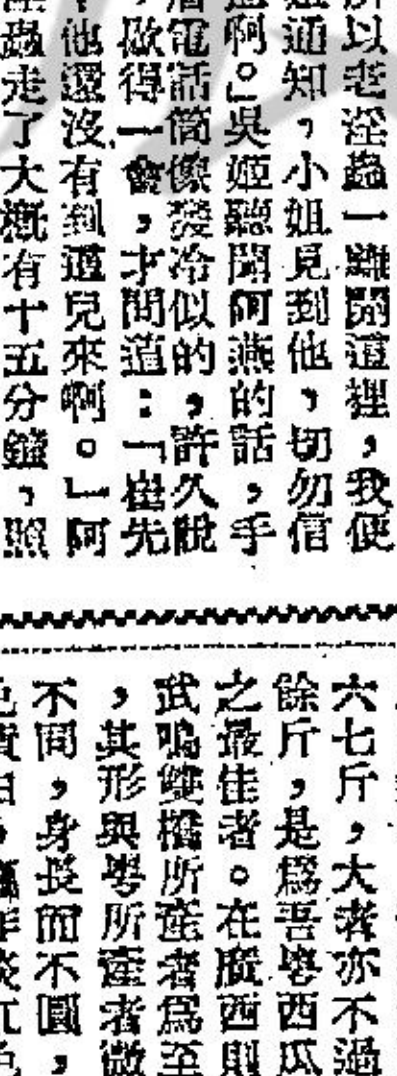 所以老淫蟲一離開這裡，我便
通知，小姐見到他，切勿信
啊。」吳姬聽聞阿燕的話，手
電話筒像發冷似的，許久說
，做得一會，才問道：「崔先
他還沒有到這兒來啊。」阿
蟲走了大概有十五分鐘，照
六七斤，大者亦不過
餘斤，是爲吾粤西瓜
之最佳者。在廣西則
武鳴雙橋所產者爲至
，其形與粤所產者微
不同，身長而不圓，